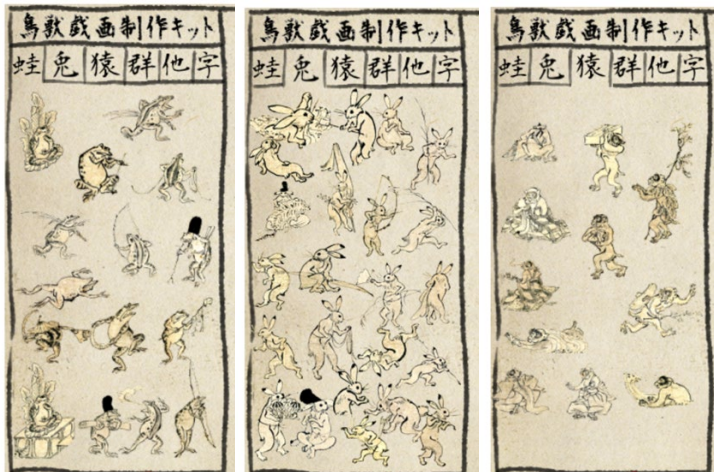 鳥獣戯画制作キット
蛙 兎 猿 群 他 字
鳥獣戯画制作キット
蛙 兎 猿 群 他 字
鳥獣戯画制作キット
蛙 兎 猿 群 他 字